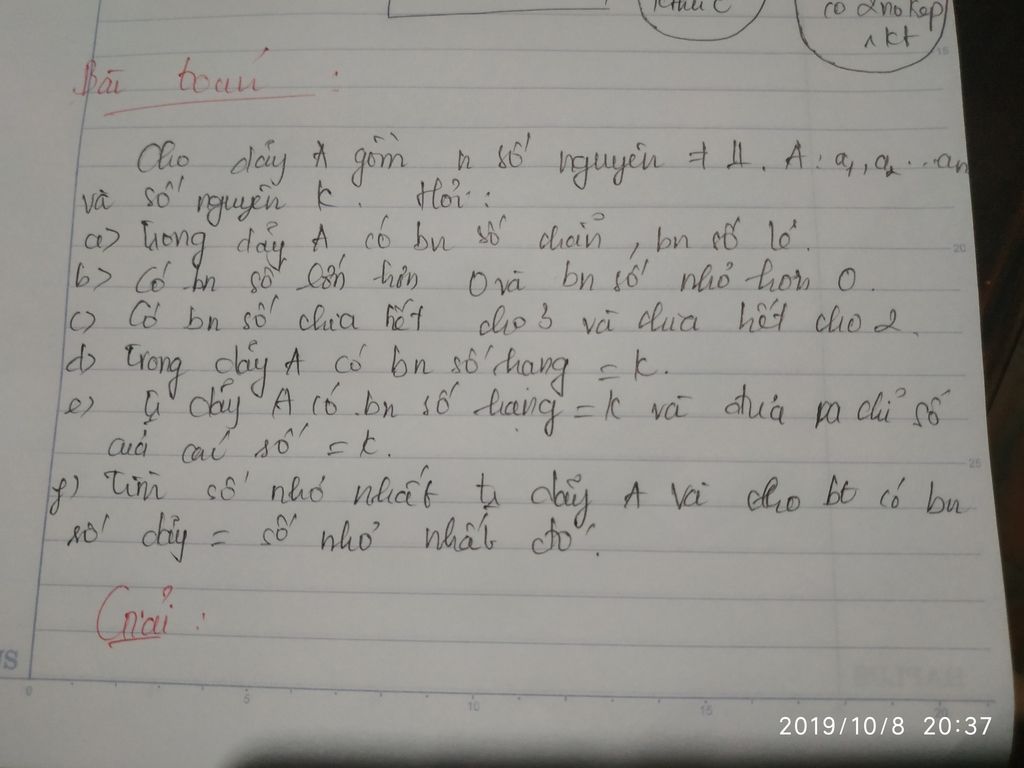 có 2no kép
1 kt
Bài toán :
Cho dãy A gồm n số nguyên ≠ . A : a1, a2 ... an
và số nguyên K. Hỏi :
a) Trong dãy A có bn số chẵn, bn số lẻ.
b) Có bn số lớn hơn 0 và bn số nhỏ hơn 0.
c) Có bn số chia hết cho 3 và chia hết cho 2.
d) Trong dãy A có bn số hạng = K.
e) dãy A có bn số hạng = K và đưa ra chỉ số
của các số = K.
f) Tìm số nhỏ nhất dãy A và cho bt có bn
số dãy = số nhỏ nhất đó.
Giải :
15
20
25
0 5 10 15 20
2019/10/8 20:37